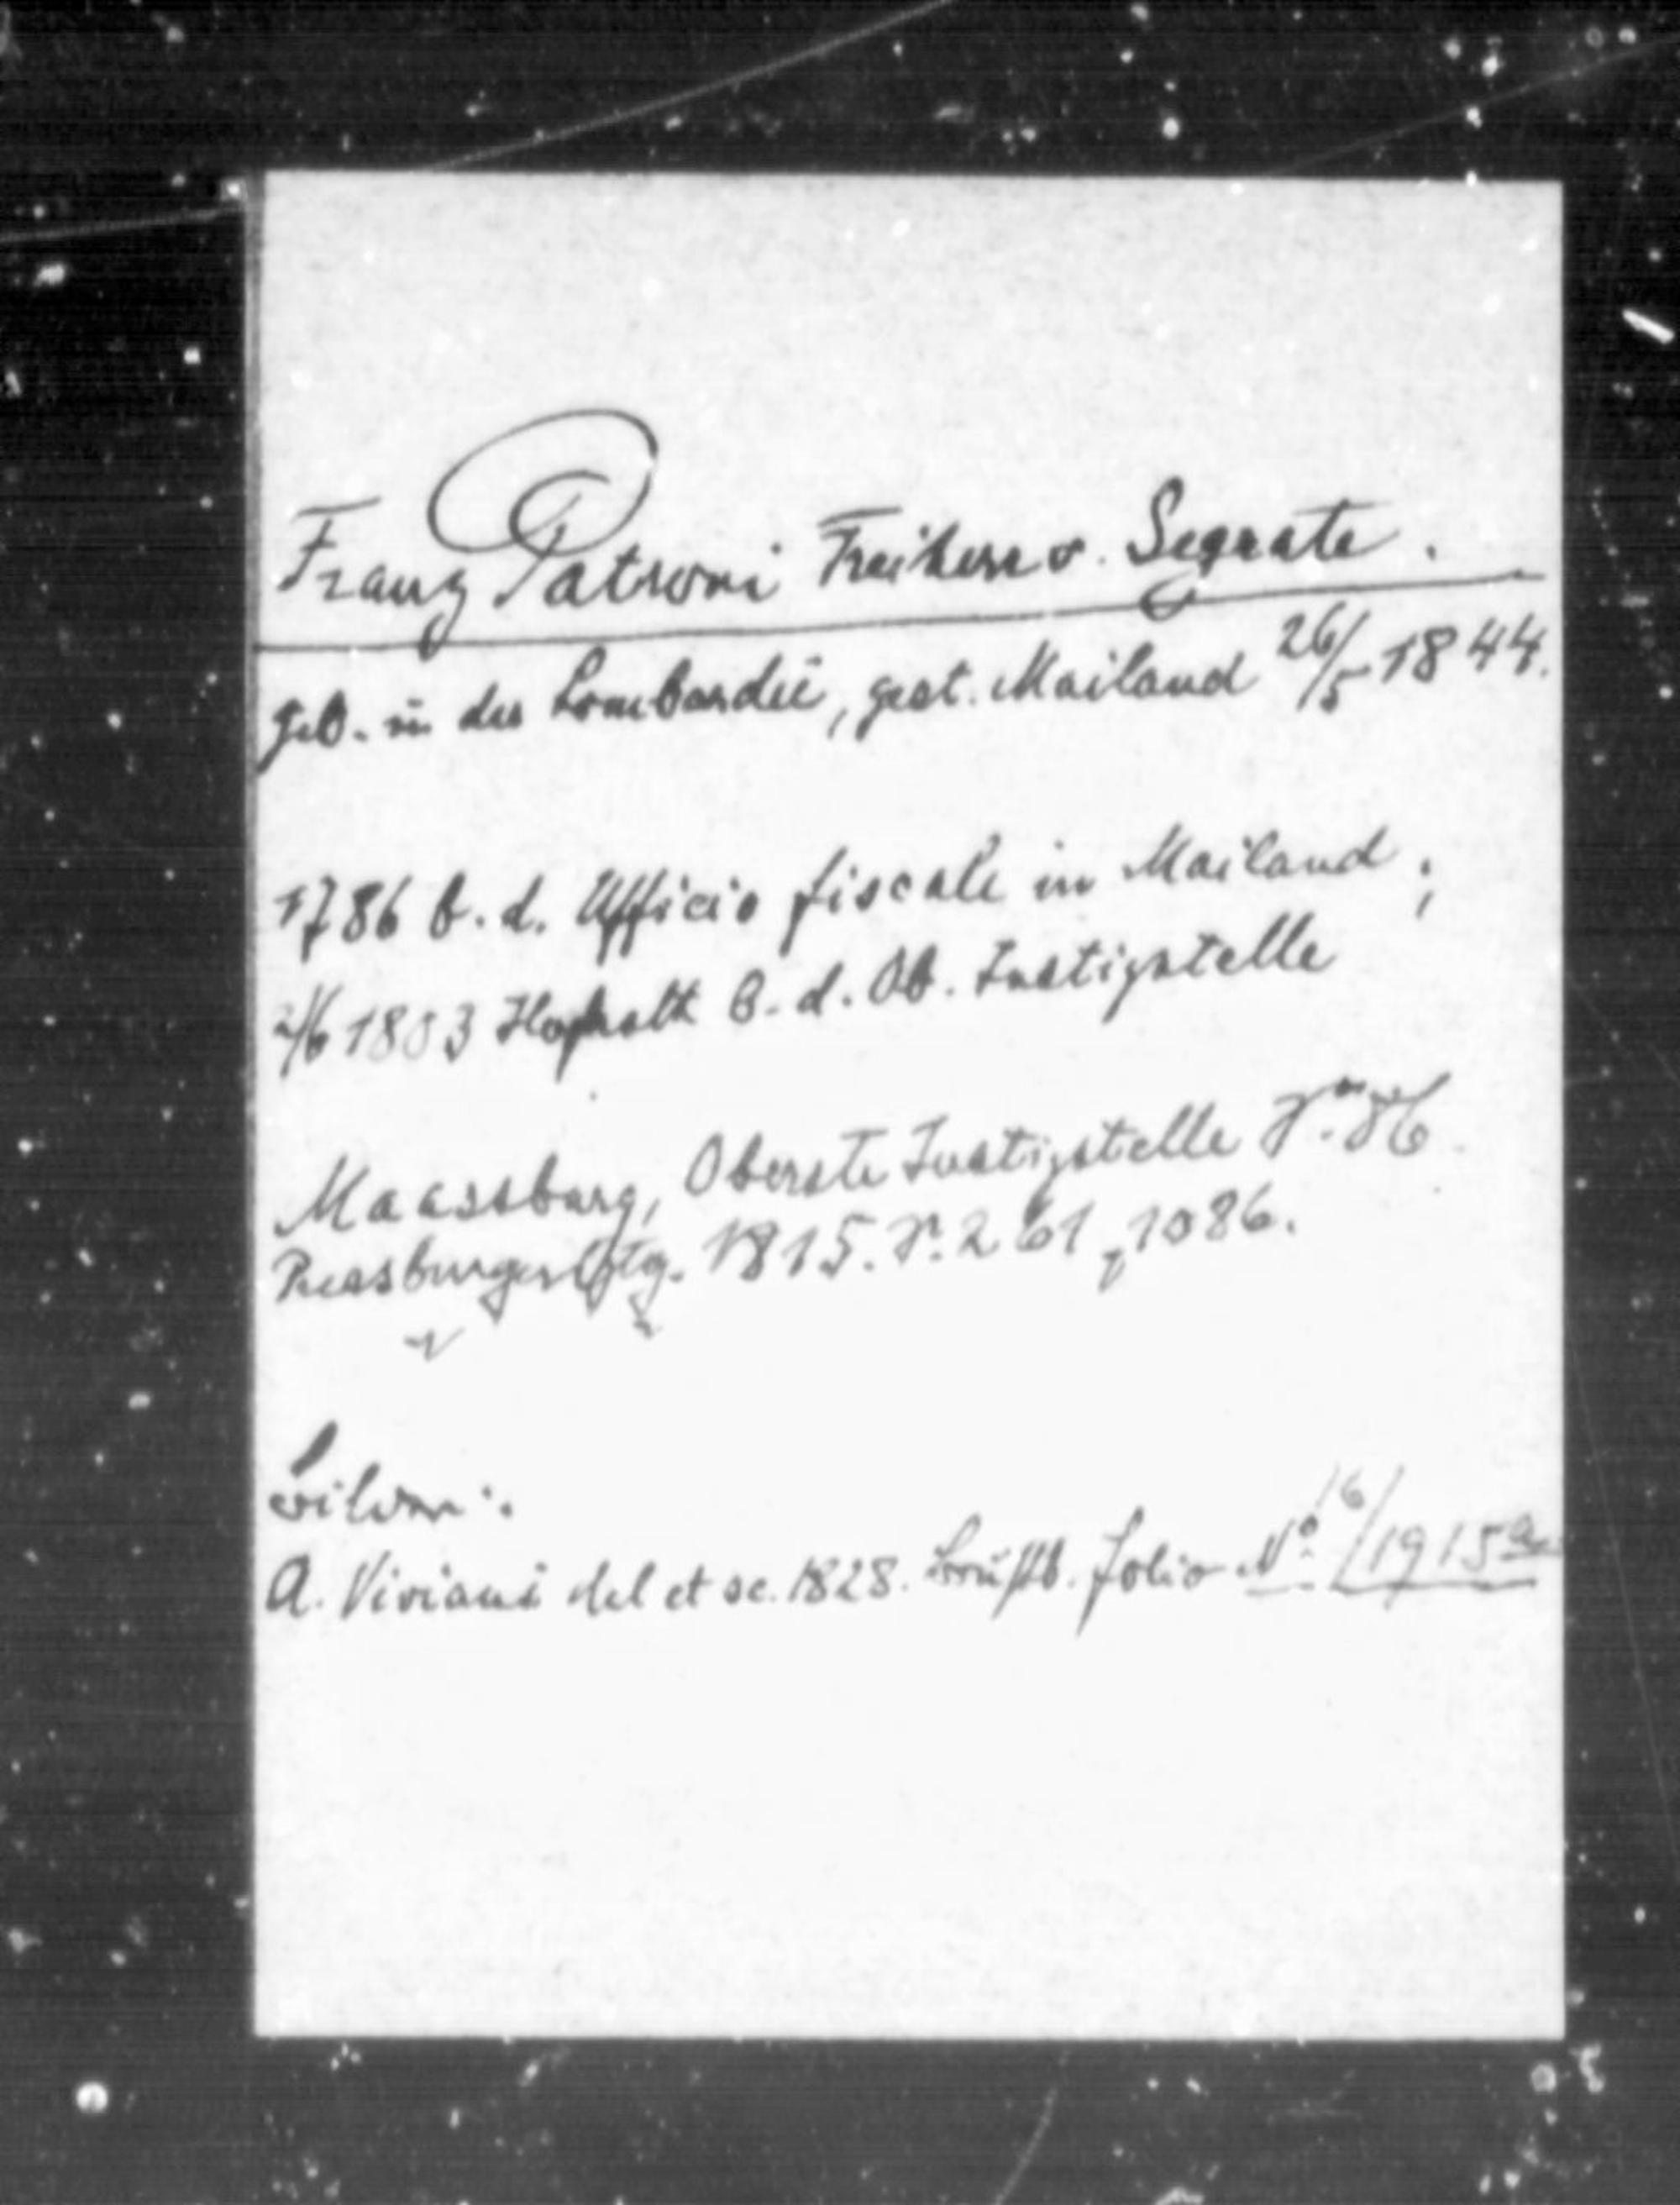 Franz Patroni Freiherr v. Segrate.
geb. in der Lombardei, gest. Mailand 26/5 1844.
1786 b. d. Ufficio fiscale in Mailand;
2/6 1803 Hofrath b. d. Ob. Justizstelle
Maassburg, Oberste Justizstelle Nr. 86.
Pressburger Ztg. 1815. Nr. 261, 1086.
A. Viviani del et sc. 1828. Brustb. folio No 16/1915